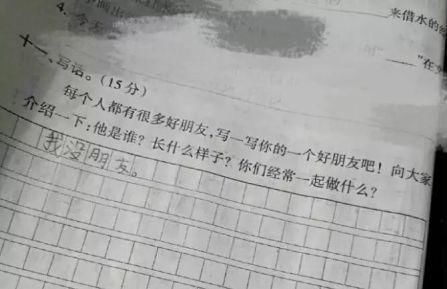 来借水的
4.今天
"在
十一、写话。(15分)
每个人都有很多好朋友,写一写你的一个好朋友吧!向大家
介绍一下:他是谁?长什么样子?你们经常一起做什么?
我没朋友。